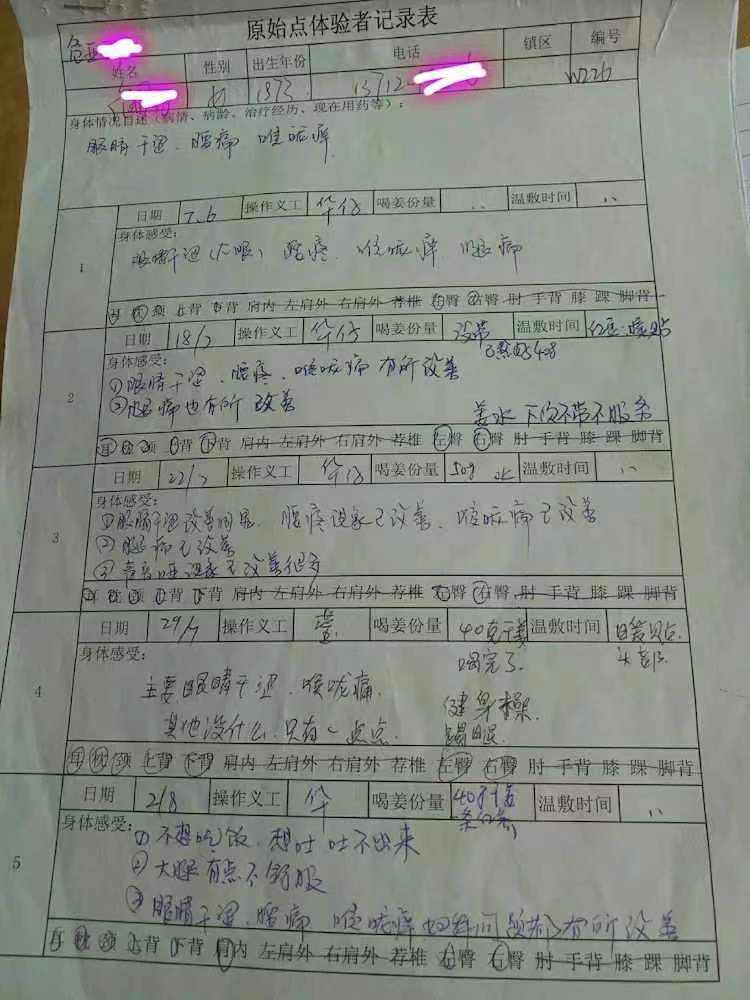 原始点体验者记录表
姓名 性别 出生年份 电话 镇区 编号
女 1973 13712 W226
身体情况自述（病情、病龄、治疗经历、现在用药等）：
眼睛干涩、腰痛 喉咙痒
1
日期 操作义工 华仔 喝姜份量 温敷时间
身体感受：
眼睛干涩 腰疼、喉咙痒 腿痛
耳 枕 颈 上背 下背 肩内 左肩外 右肩外 荐椎 左臀 右臀 肘 手背 膝 踝 脚背
2
日期 18/7 操作义工 华仔 喝姜份量 没带 温敷时间
身体感受：
①眼睛干涩、腰疼、喉咙痛 有所改善
②腿痛也有所 改善
姜水 下次不带不服务
耳 枕 颈 上背 下背 肩内 左肩外 右肩外 荐椎 左臀 右臀 肘 手背 膝 踝 脚背
3
日期 22/7 操作义工 华仔 喝姜份量 50g 温敷时间
身体感受：
①眼睛干涩改善明显、腰疼 已改善、喉咙痛已改善
②腿痛已改善
③声音哑 已改善很多
耳 枕 颈 上背 下背 肩内 左肩外 右肩外 荐椎 左臀 右臀 肘 手背 膝 踝 脚背
4
日期 29/7 操作义工 喝姜份量 40克干姜 温敷时间
身体感受：
喝完了
主要眼睛干涩、喉咙痛、
健身操
其他没什么、只有一点点
耳 枕 颈 上背 下背 肩内 左肩外 右肩外 荐椎 左臀 右臀 肘 手背 膝 踝 脚背
5
日期 2/8 操作义工 华 喝姜份量 温敷时间
身体感受：
① 不想吃饭、想吐 吐不出来
② 大腿有点不舒服
③ 眼睛干涩、腰痛 喉咙痒 有所改善
耳 枕 颈 上背 下背 肩内 左肩外 右肩外 荐椎 左臀 右臀 肘 手背 膝 踝 脚背